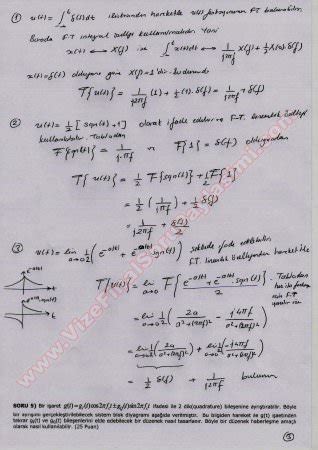 ① u(t) = ∫_{-∞}^{t} δ(t)dt ifadesinden hareketle u(t) fonksiyonunun FT bulunabilir.
Burada FT integral özelliği kullanılmalıdır. Yani
x(t) ↔ X(f) ise ∫_{-∞}^{t} x(t)dt ↔ 1/(j2πf) X(f) + 1/2 X(0).δ(f)
x(t) = δ(t) olduğuna göre X(f) = 1'dir.
F{u(t)} = 1/(j2πf) (1) + 1/2 (1).δ(f) = 1/(j2πf) + δ(f)
② u(t) = 1/2 [sgn(t) + 1] olarak ifade edilir ve FT. lineerlik özelliği
kullanılabilir. Tablodan
F{sgn(t)} = 1/(j.πf) ve F{1} = δ(f) olduğundan
F{u(t)} = 1/2 F{sgn(t)} + 1/2 F{1}
= 1/2 (1/(jπf)) + 1/2 δ(f)
= 1/(j2πf) + δ(f)/2
③ u(t) = lim_{a→0} 1/2 (e^{-a|t|} + e^{-a|t|} sgn(t)) şeklinde ifade edilebilir.
FT lineerlik özelliğinden hareketle
e^{-a|t|}
F{u(t)} = lim_{a→0} F{(e^{-a|t|} + e^{-a|t|} . sgn(t))/2}. Tablodan
e^{-a|t|}.sgn(t)
t
= lim_{a→0} 1/2 (2a/(a²+(2πf)²)) + lim_{a→0} 1/2 (-j4πf/(a²+(2πf)²))
= 1/2 δ(f) + 1/(j2πf) bulunur
SORU 5) Bir işaret g(t)=g_i(t)cos2πf_c t ± g_q(t)sin2πf_c t ifadesi ile 2 dik(quadrature) bileşenine ayrıştırabilir. Böyle
bir ayrışımı gerçekleştirilebilecek sistem blok diyagramı aşağıda verilmiştir. Bu düzenekten hareket ile g(t) işaretini
tekrar g_i(t) ve g_q(t) bileşenlerini elde edebilecek bir düzenek nasıl tasarlanır. Böyle bir düzenek haberleşme amaçlı
olarak nasıl kullanılabilir. (25 Puan)
www.VizeFinalSoruPaylasimi.com